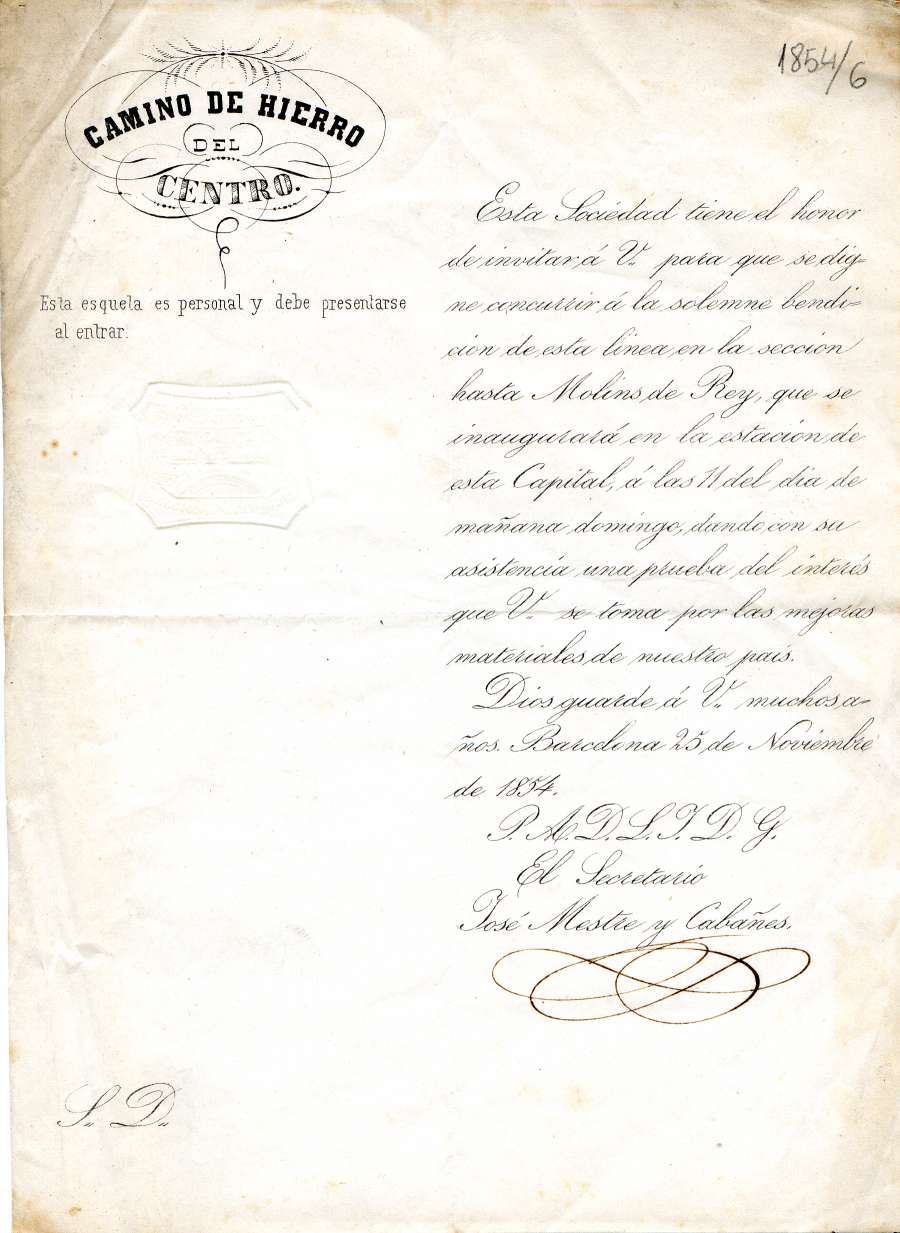 1854/6
CAMINO DE HIERRO
DEL
CENTRO.
Esta esquela es personal y debe presentarse
al entrar.
Esta Sociedad tiene el honor
de invitar á V. para que se dig=
ne concurrir á la solemne bendi=
cion de esta linea en la seccion
hasta Molins de Rey, que se
inaugurará en la estacion de
esta Capital, á las 11 del dia de
mañana domingo, dando con su
asistencia una prueba del interés
que V. se toma por las mejoras
materiales de nuestro pais.
Dios guarde á V. muchos a=
ños. Barcelona 25 de Noviembre
de 1854.
P. A. D. L. J. D. G.
El Secretario
José Mestre y Cabañes.
S. D.